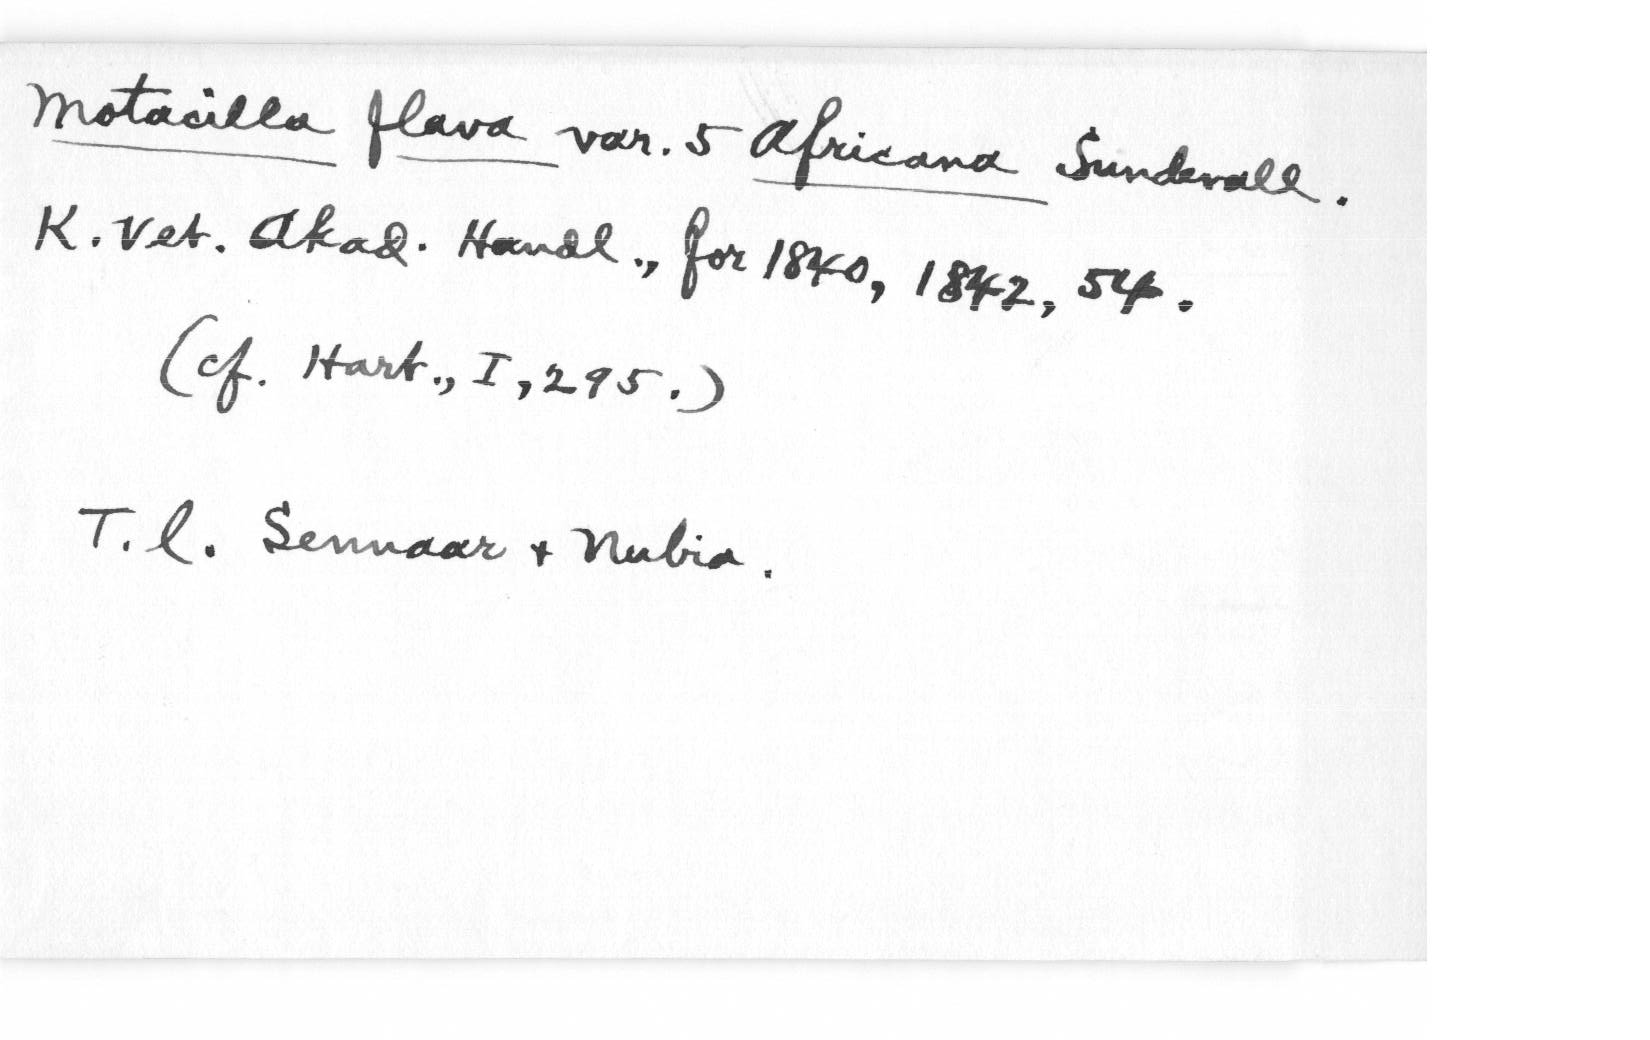 Motacilla flava var. 5 Africana Sundevall.
K. Vet. Akad. Handl., for 1840, 1842, 54.
(cf. Hart., I, 295.)
T. l. Sennaar + Nubia.